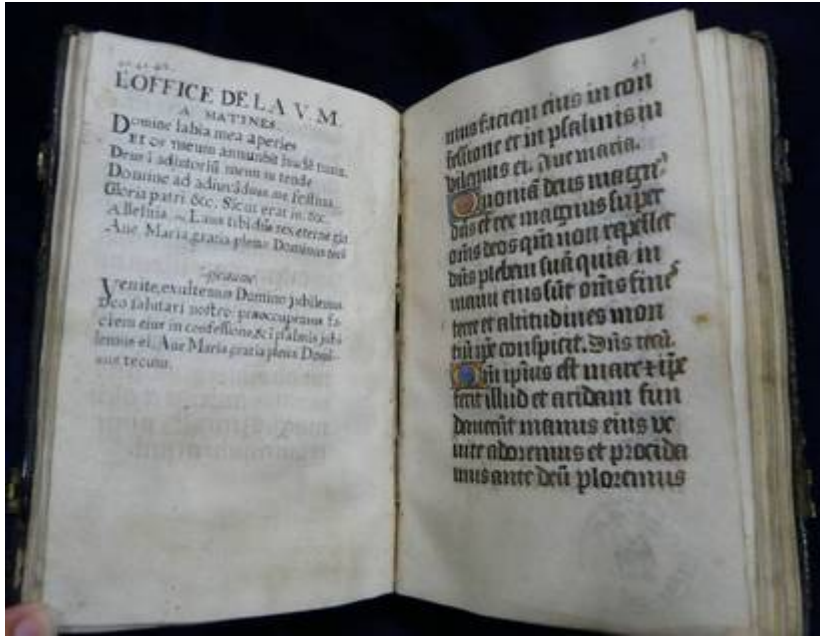 40. 41. 42.
L'OFFICE DE LA V. M.
A MATINES
Domine labia mea aperies
Et os meum annunbit laudē tuam.
Deus ī adiutoriū meum intende
Domine ad adiuuādum me festina.
Gloria patri &c. Sicut erat in. &c.
Alleluia. Laus tibi dñe rex eterne glā
Aue Maria gratia plena Dominus tecū
Venite, exultemus Domino jubilemus
Deo salutari nostro: præoccupemus fa-
ciem eius in confessione, & ī psalmis jubi
lemus ei. Aue Maria gratia plena Domi-
nus tecum.
43
mus faciem eius in con
fessione et in psalmis iu
bilemus ei. Aue maria.
Quoniā deus magn⁹
dñs et rex magnus super
om̄s deos qm̄ non repellet
dñs plebem suā quia in
manu eius sūt om̄s fines
terre et altitudines mon
tiū ipē conspicit. Dñs tecū.
Qm̄ ipsius est mare ⁊ ipē
fecit illud et aridam fun
dauerūt manus eius ve
nite adoremus et procida
mus ante deū ploremus